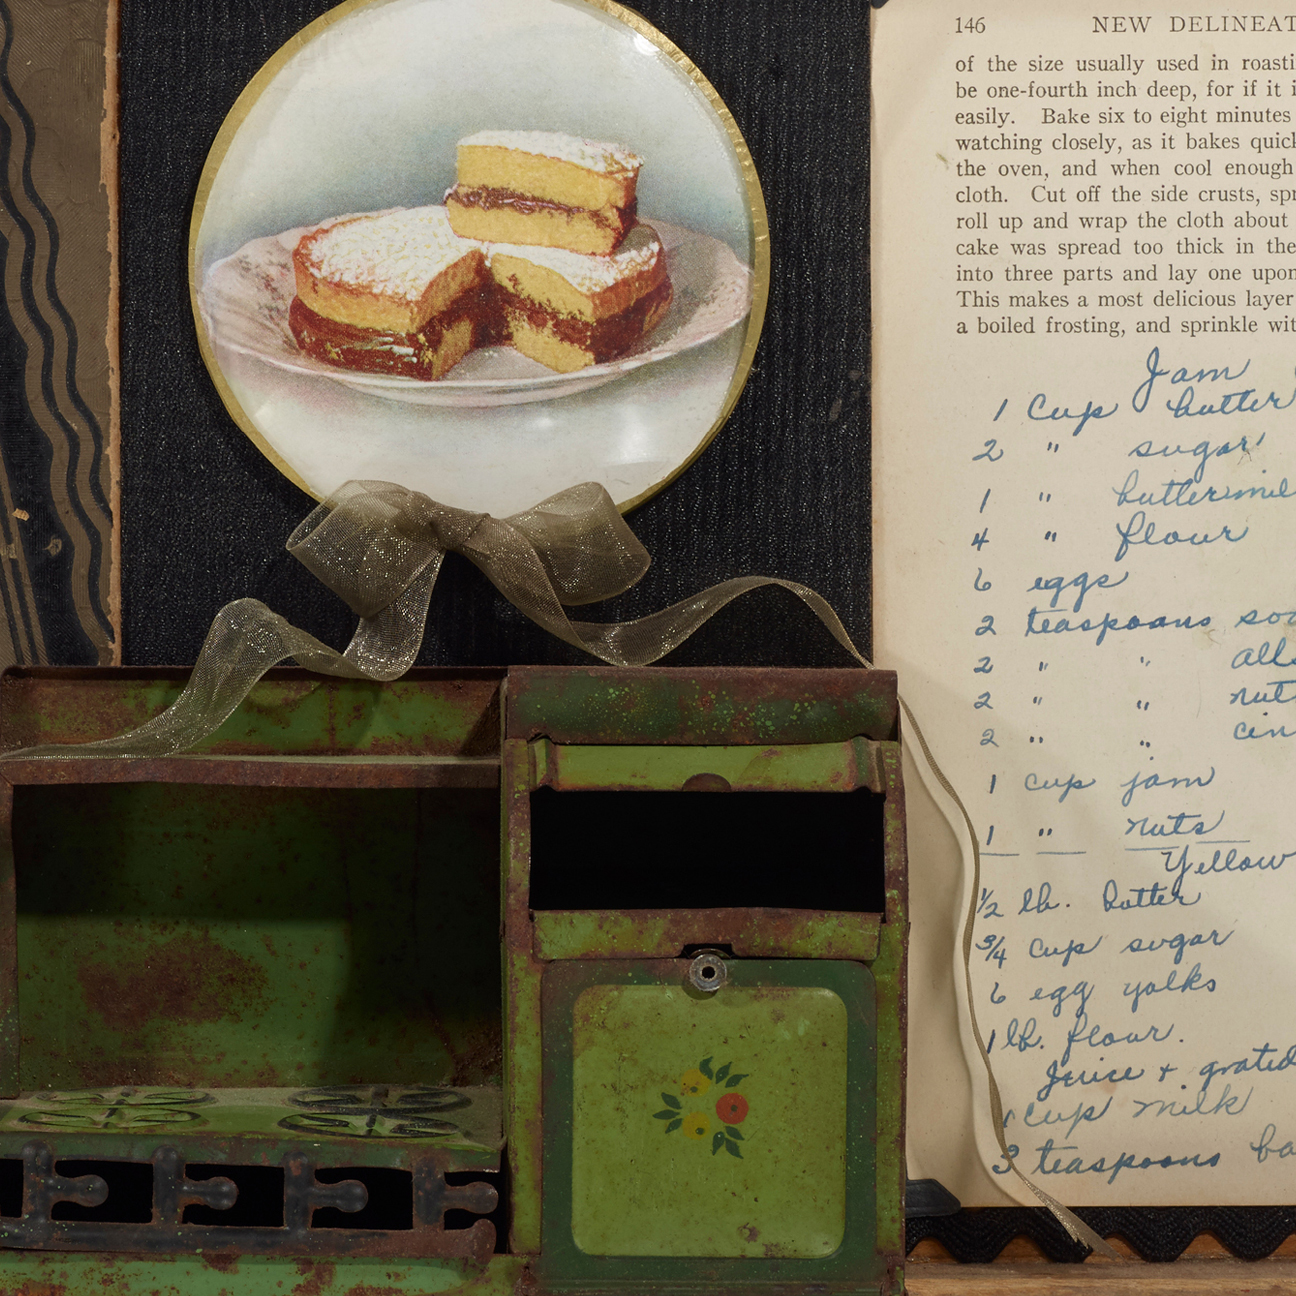 146 NEW DELINEAT
of the size usually used in roasti
be one-fourth inch deep, for if it i
easily. Bake six to eight minutes
watching closely, as it bakes quick
the oven, and when cool enough
cloth. Cut off the side crusts, spr
roll up and wrap the cloth about
cake was spread too thick in the
into three parts and lay one upon
This makes a most delicious layer
a boiled frosting, and sprinkle wit
Jam
1 Cup butter
2 " sugar
1 " buttermil
4 " flour
6 eggs
2 teaspoons sod
2 " " all
2 " " nut
2 " " cin
1 cup jam
1 " nuts
Yellow
1/2 lb. butter
3/4 cup sugar
6 egg yolks
1 lb. flour.
Juice + grated
1 cup milk
3 teaspoons ba